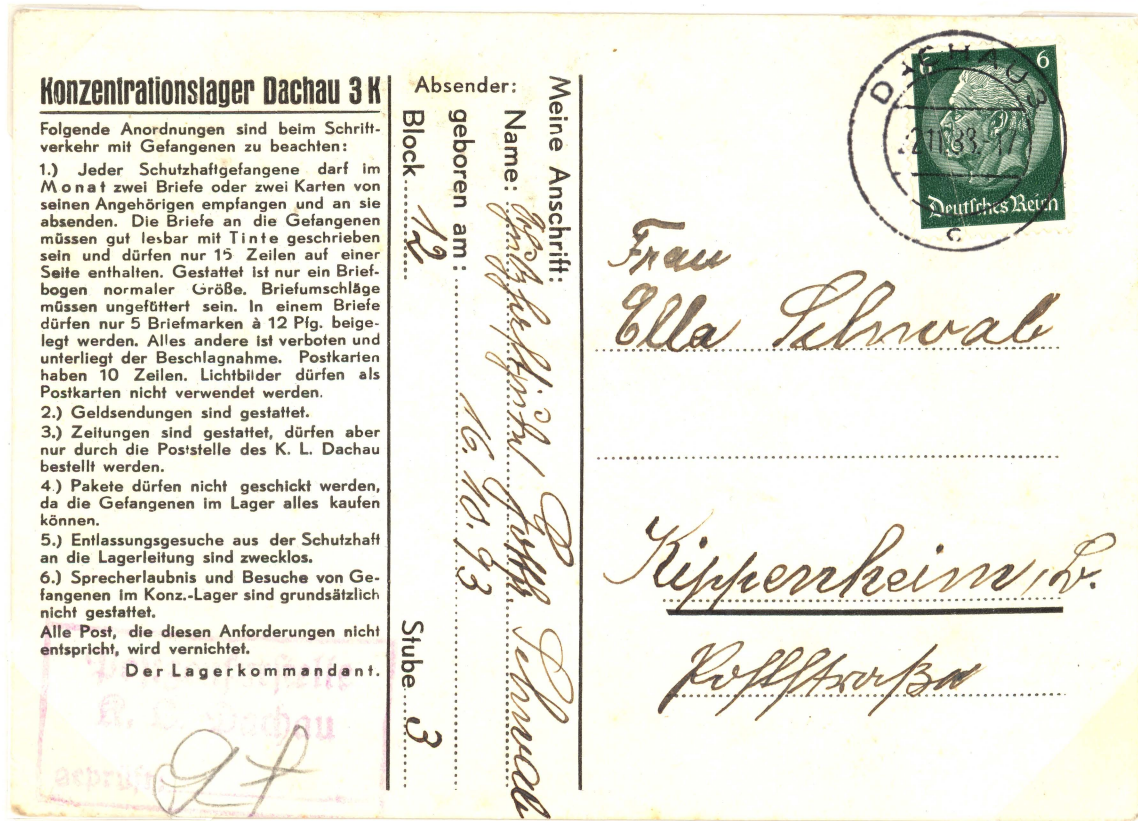 Konzentrationslager Dachau 3 K
Folgende Anordnungen sind beim Schrift-
verkehr mit Gefangenen zu beachten:
1.) Jeder Schutzhaftgefangene darf im
Monat zwei Briefe oder zwei Karten von
seinen Angehörigen empfangen und an sie
absenden. Die Briefe an die Gefangenen
müssen gut lesbar mit Tinte geschrieben
sein und dürfen nur 15 Zeilen auf einer
Seite enthalten. Gestattet ist nur ein Brief-
bogen normaler Größe. Briefumschläge
müssen ungefüttert sein. In einem Briefe
dürfen nur 5 Briefmarken à 12 Pfg. beige-
legt werden. Alles andere ist verboten und
unterliegt der Beschlagnahme. Postkarten
haben 10 Zeilen. Lichtbilder dürfen als
Postkarten nicht verwendet werden.
2.) Geldsendungen sind gestattet.
3.) Zeitungen sind gestattet, dürfen aber
nur durch die Poststelle des K. L. Dachau
bestellt werden.
4.) Pakete dürfen nicht geschickt werden,
da die Gefangenen im Lager alles kaufen
können.
5.) Entlassungsgesuche aus der Schutzhaft
an die Lagerleitung sind zwecklos.
6.) Sprecherlaubnis und Besuche von Ge-
fangenen im Konz.-Lager sind grundsätzlich
nicht gestattet.
Alle Post, die diesen Anforderungen nicht
entspricht, wird vernichtet.
Der Lagerkommandant.
K. L. Dachau
geprüft
Absender:
Meine Anschrift:
Name: Schutzhaftjude Schwab
geboren am: 16. 10. 93
Block 12 Stube 3
DACHAU 3
c
6
Deutsches Reich
Frau
Ella Schwab
Kippenheim, B.
Poststraße